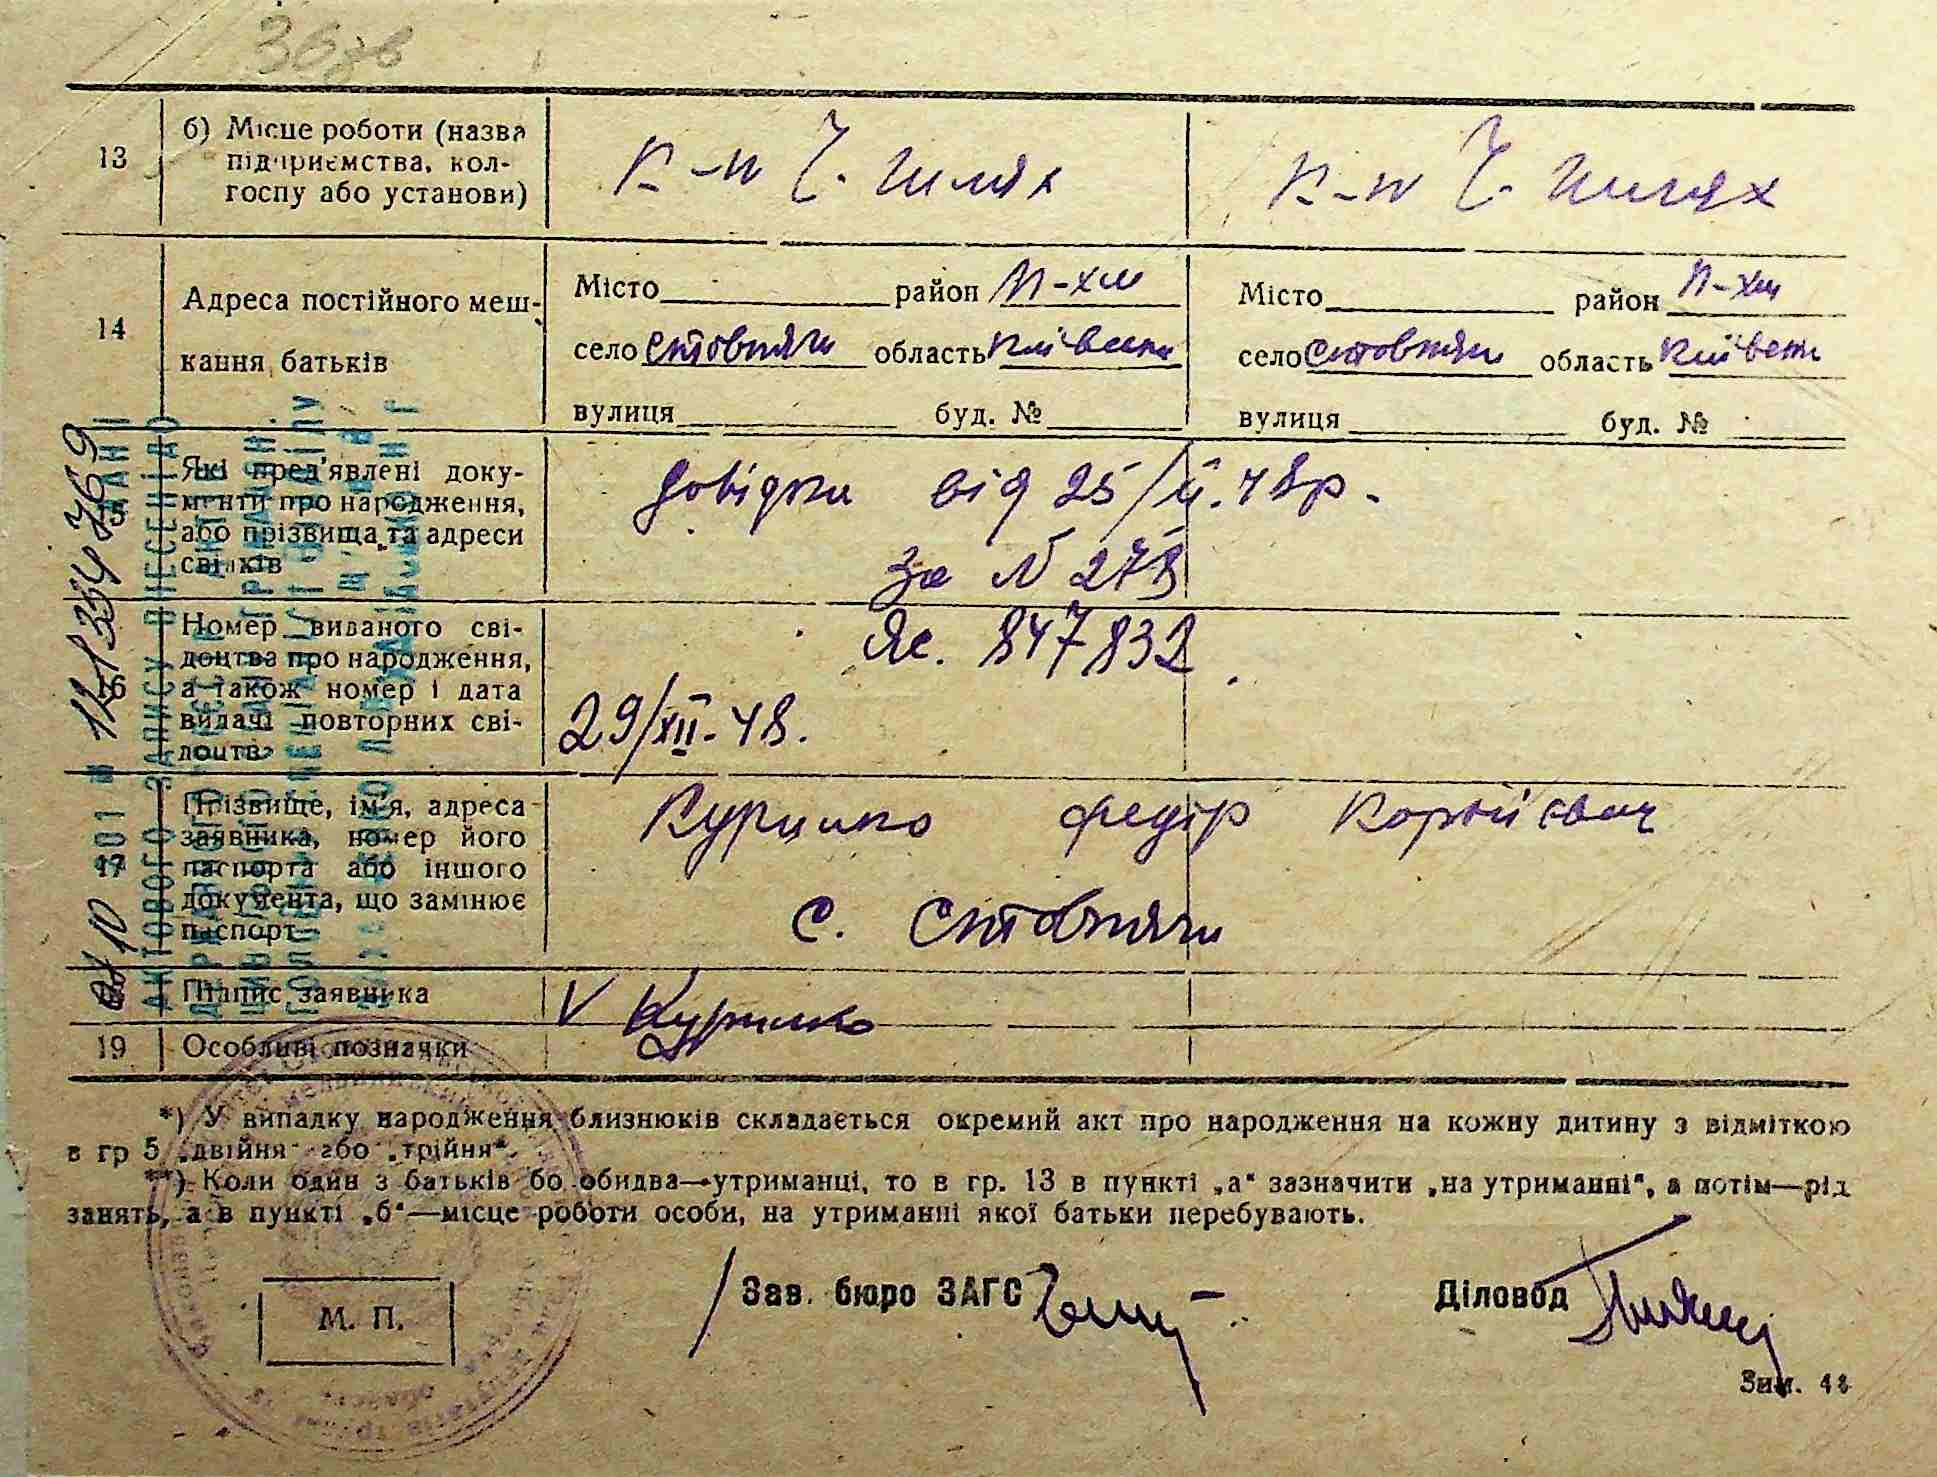 36зв
13
б) Місце роботи (назва
підприємства, кол-
госпу або установи)
К-п Ч. Шлях
К-п Ч. Шлях
14
Адреса постійного меш-
кання батьків
Місто район П-Хм
село Стовпяги область Київська
вулиця буд. №
Місто район П-Хм
село Стовпяги область Київська
вулиця буд. №
15
Які пред'явлені доку-
менти про народження,
або прізвища та адреси
свідків
довідка від 25/ 48р.
за № 278
16
Номер виданого сві-
доцтва про народження,
а також номер і дата
видачі повторних сві-
доцтв
Яс. 847832
29/XII-48.
17
Прізвище, ім'я, адреса
заявника, номер його
паспорта або іншого
документа, що замінює
паспорт
Курилко Федір Корнійович
с. Стовпяги
Підпис заявника
V Курилко
19
Особливі позначки
АКТОВОГО ЗАПИСУ ВНЕСЕНІ ДО
*) У випадку народження близнюків складається окремий акт про народження на кожну дитину з відміткою
в гр 5 „двійня“ або „трійня“.
**) Коли один з батьків бо обидва—утриманці, то в гр. 13 в пункті „а“ зазначити „на утриманні“, а потім—рід
занять, а в пункті „б“—місце роботи особи, на утриманні якої батьки перебувають.
М. П.
Зав. бюро ЗАГС
Діловод
Зим. 48